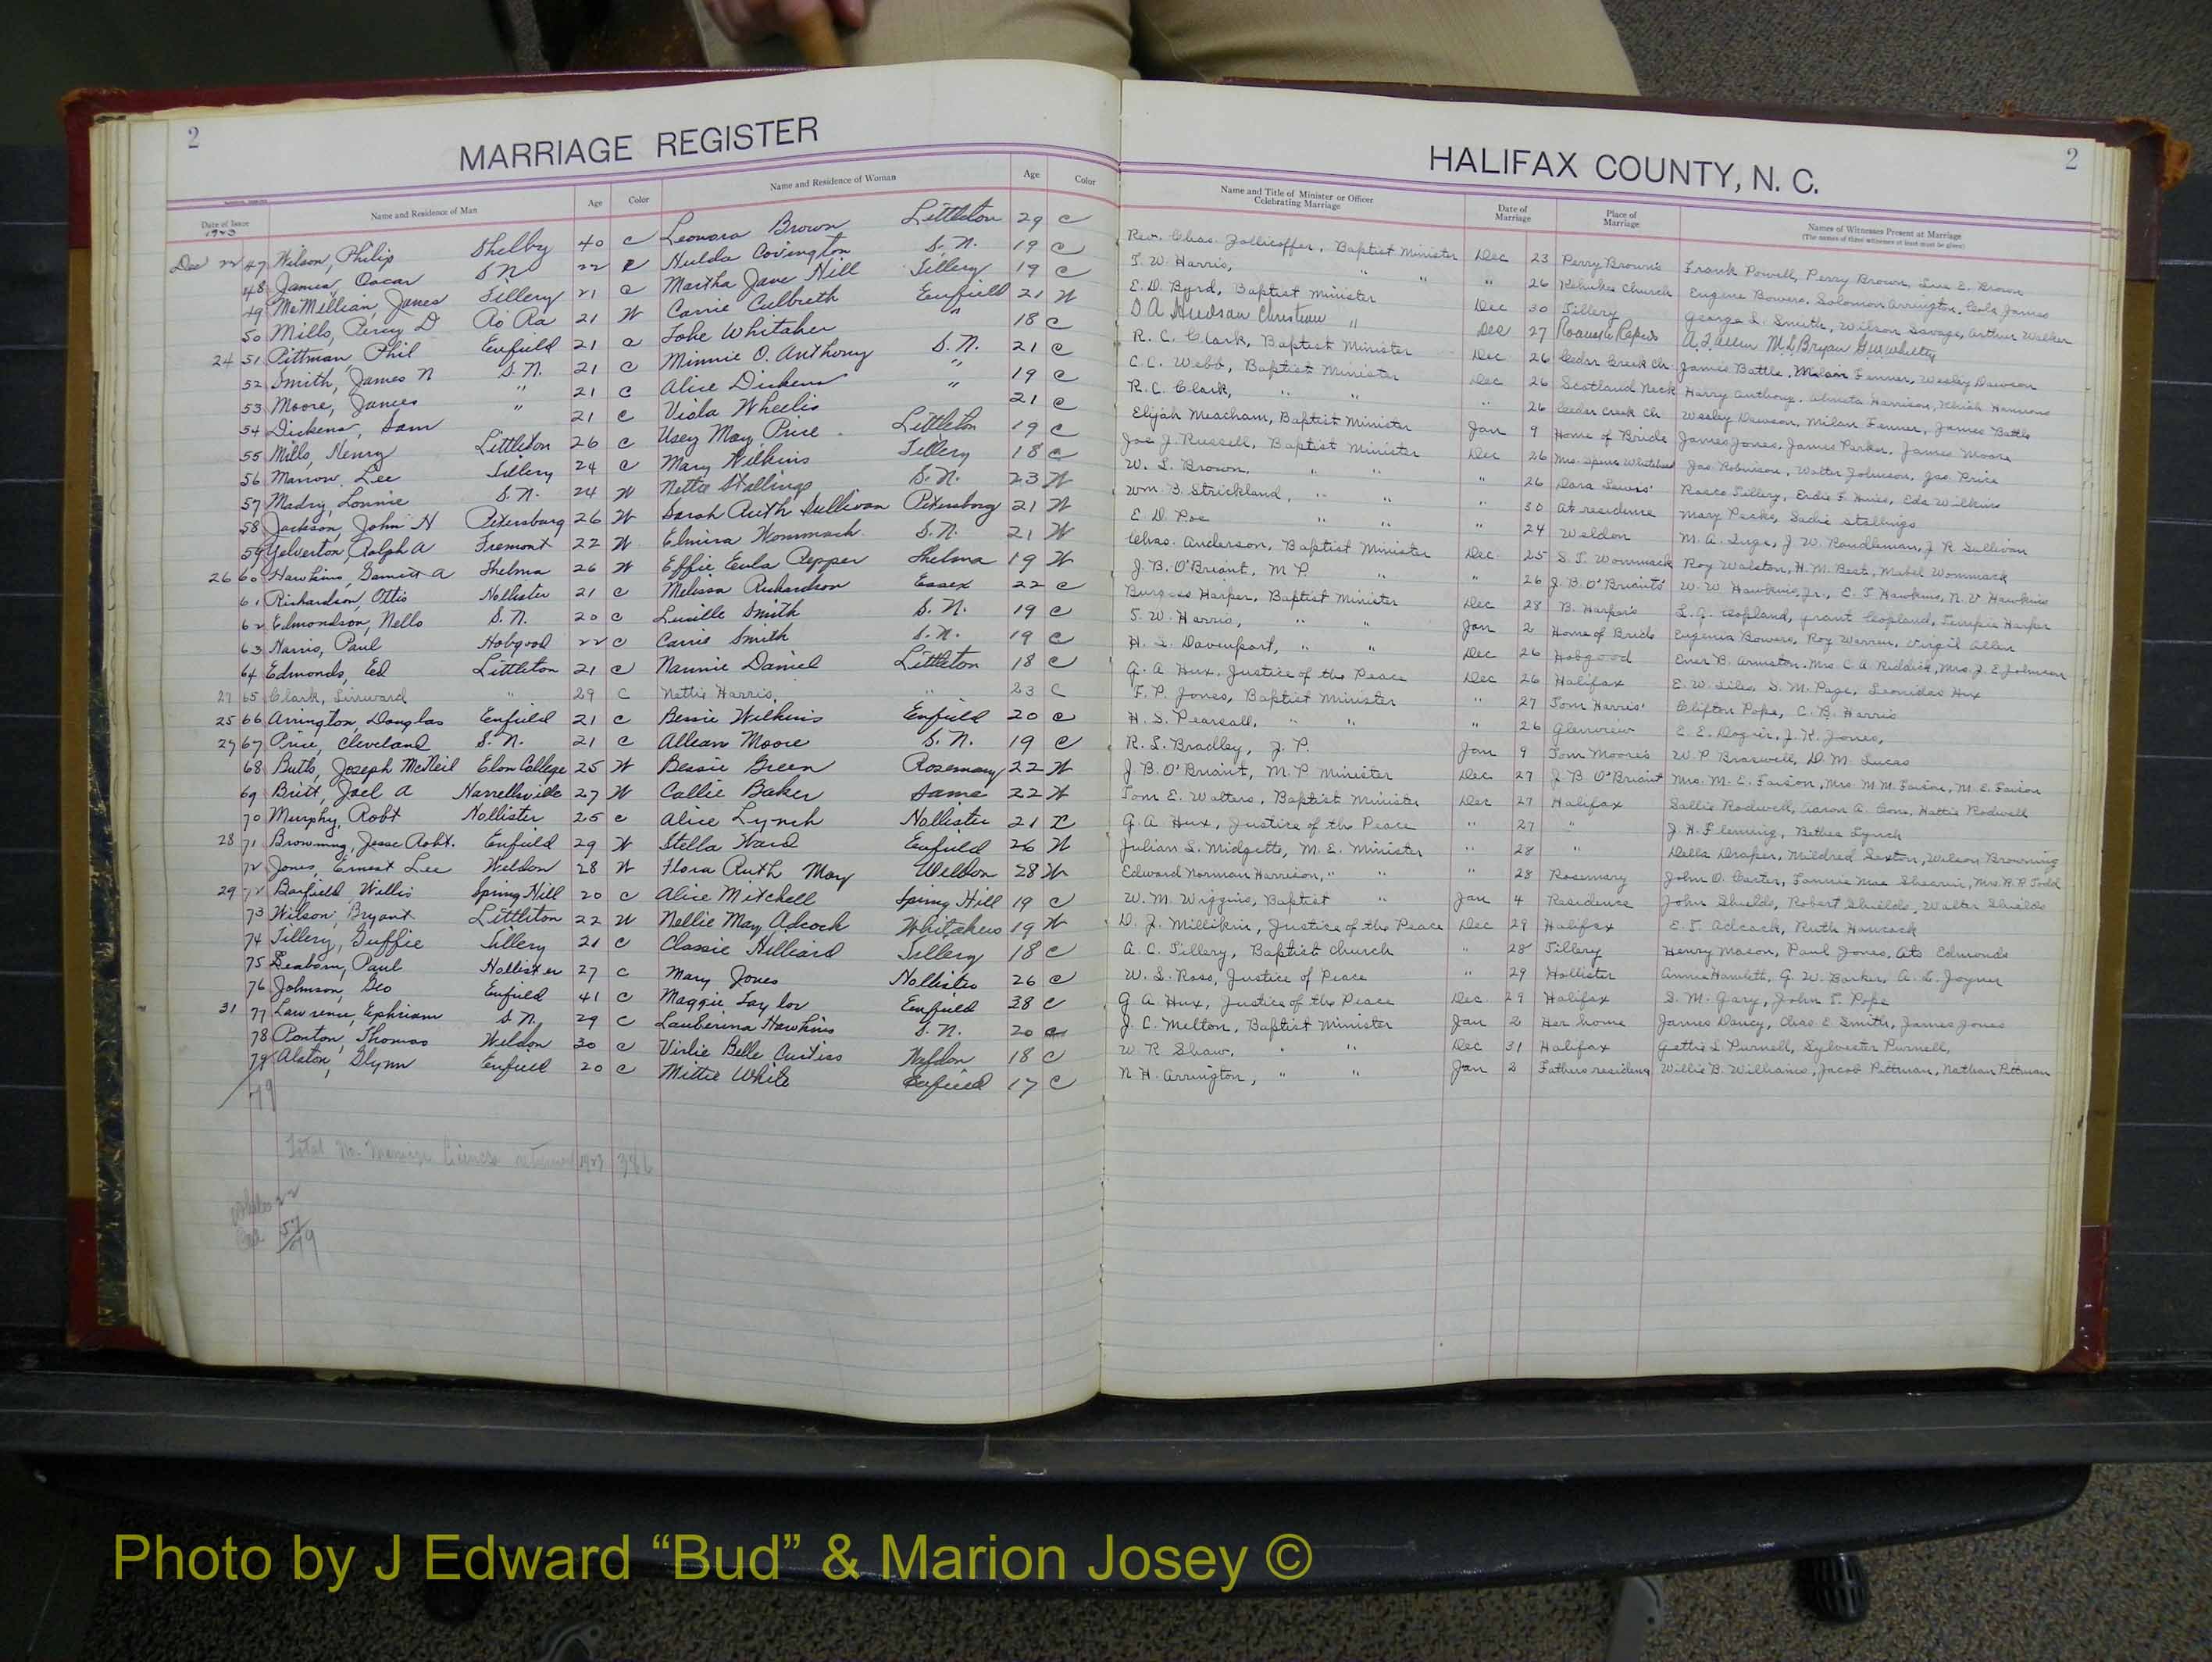 2
MARRIAGE REGISTER
HALIFAX COUNTY, N. C.
2
Date of Issue
Name and Residence of Man
Age
Color
Name and Residence of Woman
Age
Color
Name and Title of Minister or Officer
Celebrating Marriage
Date of
Marriage
Place of
Marriage
Names of Witnesses Present at Marriage
(The names of three witnesses at least must be given)
1923
Dec 22 47 Wilson, Philip Shelby 40 C Leonora Brown Littleton 29 C Rev. Chas. Jollicoffer, Baptist Minister Dec 23 Perry Brown's Frank Powell, Perry Brown, Sue E. Brown
48 James, Oscar S N 22 C Hulda Covington S. N. 19 C T. W. Harris, " " " 26 Kehukee Church Eugene Bowers, Solomon Arrington, Cola James
49 McMillian, James Tillery 21 C Martha Jane Hill Tillery 19 C E. D. Byrd, Baptist Minister Dec 30 Tillery George L. Smith, Wilson Savage, Arthur Walker
50 Mills, Percy D Ro Ra 21 W Carrie Culbreth Enfield 21 W D A Hudson Christian " Dec 27 Roanoke Rapids
24 51 Pittman, Phil Enfield 21 C Whitaker " 18 C R. C. Clark, Baptist Minister Dec 26 Cedar Creek Ch. James Battle, Milan Fenner, Wesley Dawson
52 Smith, James N S. N. 21 C Minnie O. Anthony S. N. 21 C C. C. Webb, Baptist Minister Dec 26 Scotland Neck Harry Anthony, Almeta Harrison
53 Moore, James " 21 C Alice Dickens " 19 C R. C. Clark, " " " 26 Cedar Creek Ch. Wesley Dawson, Milan Fenner, James Battle
54 Dickens, Sam " 21 C Viola Wheelis " 21 C Elijah Meacham, Baptist Minister Jan 9 Home of Bride James Jones, James Parker, James Moore
55 Mills, Henry Littleton 26 C Usey May Price Littleton 19 C Joe J. Russell, Baptist Minister Dec 26 Jas Robinson, Walter Johnson, Jas Price
56 Marrow, Lee Tillery 24 C Mary Wilkins Tillery 18 C W. L. Brown, " " " 26 Dora Lewis' Rosco Tillery, Eda Wilkins
57 Madry, Lonnie S. N. 24 W Nettie Stallings S. N. 23 W Wm B. Strickland, " " " 30 At residence Mary Parks, Sadie Stallings
58 Jackson, John H Petersburg 26 W Sarah Ruth Sullivan Petersburg 21 W E. D. Poe " " " 24 Weldon M. A. Suge, J. W. Raudleman, J. R. Sullivan
59 Yelverton, Ralph A Fremont 22 W Elmira Wommack S. N. 21 W Chas. Anderson, Baptist Minister Dec. 25 S. T. Wommack Roy Walston, H. M. Best, Mabel Wommack
26 60 Hawkins, A Thelma 26 W Effie Eula Pepper Thelma 19 W J. B. O'Briant, M P. " " 26 J. B. O'Briants' W. W. Hawkins, Jr., E. T. Hawkins, N. V. Hawkins
61 Richardson, Ottis Hollister 21 C Melissa Richardson Essex 22 C Burgess Harper, Baptist Minister Dec 28 B. Harper's L. G. Copland, Grant Copland, Tempie Harper
62 Edmondson, Nello S. N. 20 C Lucille Smith S. N. 19 C T. W. Harris, " " Jan 2 Home of Bride Eugenia Bowers, Roy Warren, Virgil Allen
63 Harris, Paul Hobgood 22 C Carrie Smith S. N. 19 C H. L. Davenport, " " Dec 26 Hobgood Mrs. C. A. Riddick, Mrs. J. E. Johnson
64 Edmonds, Ed Littleton 21 C Nannie Daniel Littleton 18 C G. A Hux, Justice of the Peace Dec 26 Halifax E. W. Liles, S. M. Page, Leonidas Hux
27 65 Clark, Linward " 29 C Nettie Harris, " 23 C F. P. Jones, Baptist Minister " 27 Tom Harris' Clifton Pope, C. B. Harris
25 66 Arrington, Douglas Enfield 21 C Bessie Wilkins Enfield 20 C H. S. Pearsall, " " " 26 Glenview E. E. J. R. Jones,
27 67 Price, Cleveland S. N. 21 C Allean Moore S. N. 19 C R. L. Bradley, J. P. Jan 9 Tom Moore's W P Braswell, D. M. Lucas
68 Butts, Joseph McNeil Elon College 25 W Bessie Green Rosemary 22 W J B. O'Briant, M. P Minister Dec 27 J. B. O'Briant Mrs. M. E. Faison, Mrs M M. Faison, M. E. Faison
69 Britt, Joel A Harrellsville 27 W Callie Baker Same 22 W Tom E. Walters, Baptist Minister Dec 27 Halifax Sallie Rodwell, Aaron A. Cone, Hattie Rodwell
70 Murphy, Robt Hollister 25 C Alice Lynch Hollister 21 C G. A Hux, Justice of the Peace " 27 " J. H. Fleming, Bethea Lynch
28 71 Browning, Jesse Robt. Enfield 29 W Stella Ward Enfield 26 W Julian S. Midgette, M. E. Minister " 28 " Della Draper, Mildred Sexton, Wilson Browning
72 Jones, Ernest Lee Weldon 28 W Flora Ruth May Weldon 28 W Edward Norman Harrison, " " " 28 Rosemary John O. Carter, Fannie Mae Shearin, Mrs. R. R. Todd
29 72 Barfield, Willis Spring Hill 20 C Alice Mitchell Spring Hill 19 C W. M. Wiggins, Baptist " Jan 4 Residence John Shields, Robert Shields, Walter Shields
73 Wilson, Bryant Littleton 22 W Nellie May Adcock Whitakers 19 W D. J. Millikin, Justice of the Peace Dec 29 Halifax E. T. Adcock, Ruth Hancock
74 Tillery, Guffie Tillery 21 C Classie Hilliard Tillery 18 C A. C. Tillery, Baptist Church " 28 Tillery Henry Mason, Paul Jones, Edmonds
75 Seaborn, Paul Hollister 27 C Mary Jones Hollister 26 C W. S. Ross, Justice of Peace " 29 Hollister Annie Hamlett, G. W. Barker, A. L. Joyner
76 Johnson, Geo Enfield 41 C Maggie Taylor Enfield 38 C G A. Hux, Justice of the Peace Dec 29 Halifax S. M. Gary, John T. Pope
31 77 Lawrence, Ephriam S. N. 29 C Lauberina Hawkins S. N. 20 C J. C. Melton, Baptist Minister Jan 2 Her home James Dancy, Chas. E. Smith, James Jones
78 Ponton, Thomas Weldon 30 C Virlie Belle Curtiss Weldon 18 C W. R Shaw, " " Dec 31 Halifax Gettie L Purnell, Sylvester Purnell,
79 Alston, Glynn Enfield 20 C Mittie White Enfield 17 C N. H. Arrington, " " Jan 2 Fathers residence Willie B. Williams, Jacob Pittman, Nathan Pittman
79
Total No. Marriage Licenses returned 1923 386
Whites 22
Col 57
79
Photo by J Edward “Bud” & Marion Josey ©